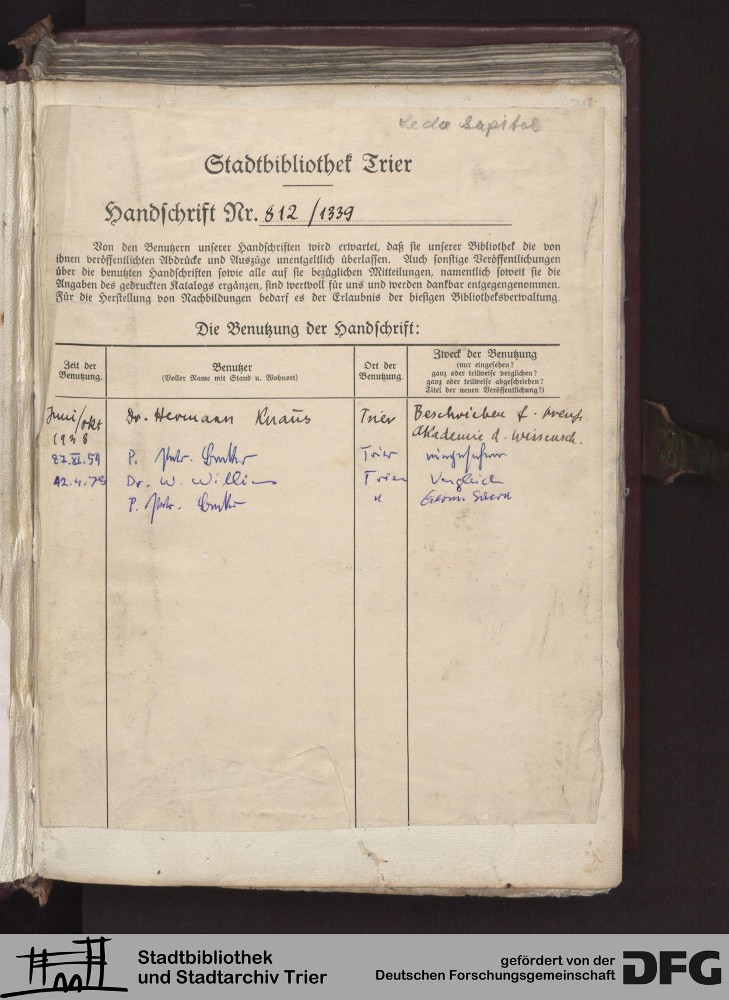 Stadtbibliothek Trier
Handschrift Nr. 812/1339
Von den Benutzern unserer Handschriften wird erwartet, daß sie unserer Bibliothek die von
ihnen veröffentlichten Abdrücke und Auszüge unentgeltlich überlassen. Auch sonstige Veröffentlichungen
über die benutzten Handschriften sowie alle auf sie bezüglichen Mitteilungen, namentlich soweit sie die
Angaben des gedruckten Katalogs ergänzen, sind wertvoll für uns und werden dankbar entgegengenommen.
Für die Herstellung von Nachbildungen bedarf es der Erlaubnis der hiesigen Bibliotheksverwaltung.
Die Benutzung der Handschrift:
Zeit der
Benutzung.
Benutzer
(Voller Name mit Stand u. Wohnort)
Ort der
Benutzung.
Zweck der Benutzung
(nur eingesehen?
ganz oder teilweise verglichen?
ganz oder teilweise abgeschrieben?
Titel der neuen Veröffentlichung?)
Juni/Okt Dr. Hermann Knaus Trier Beschrieben f. Preuß.
1938 Akademie d. Wissensch.
27.XI.59 P. Trier eingesehen
12.4.78 Dr. W. Trier Vergleich
P. " Germ. Sacra
Stadtbibliothek
und Stadtarchiv Trier
gefördert von der
Deutschen Forschungsgemeinschaft
DFG